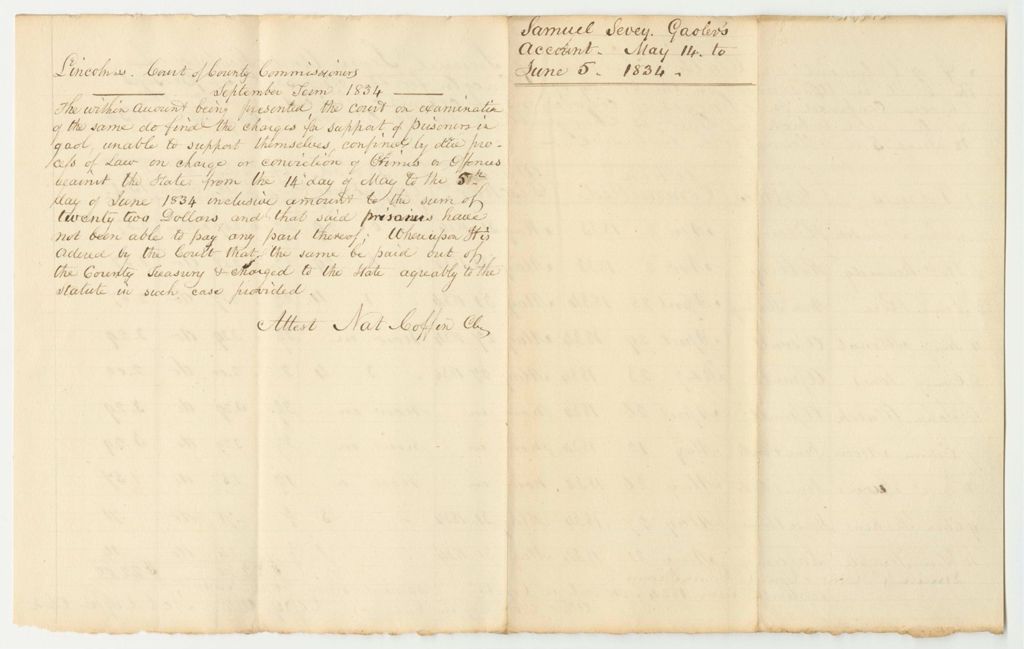 Samuel Sevey. Gaoler's
Account. May 14. to
June 5. 1834.
Lincoln ss. Court of County Commissioners
September Term 1834
The within account being presented the court on examination
of the same do find the charges for support of prisoners in
gaol, unable to support themselves, confined by due pro-
cess of Law on charge or conviction of Crimes or Offences
against the State from the 14 day of May to the 5th
day of June 1834 inclusive amount to the sum of
twenty two Dollars and that said prisoners have
not been able to pay any part thereof; Whereupon It is
ordered by the Court that the same be paid out of
the County Treasury & charged to the State agreeably to the
statute in such case provided
Attest Nat Coffin Clk